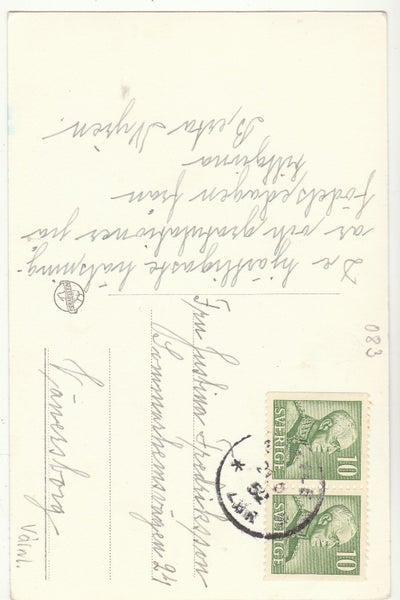 De hjärtligaste hälsning-
ar och gratulationer på
födelsedagen från
tillgivna
Berta Myrén.
Fru Justina Fredriksson
Sommarhemsvägen 24
Vänersborg
Välnl.
083
SVERIGE
10
SVERIGE
10